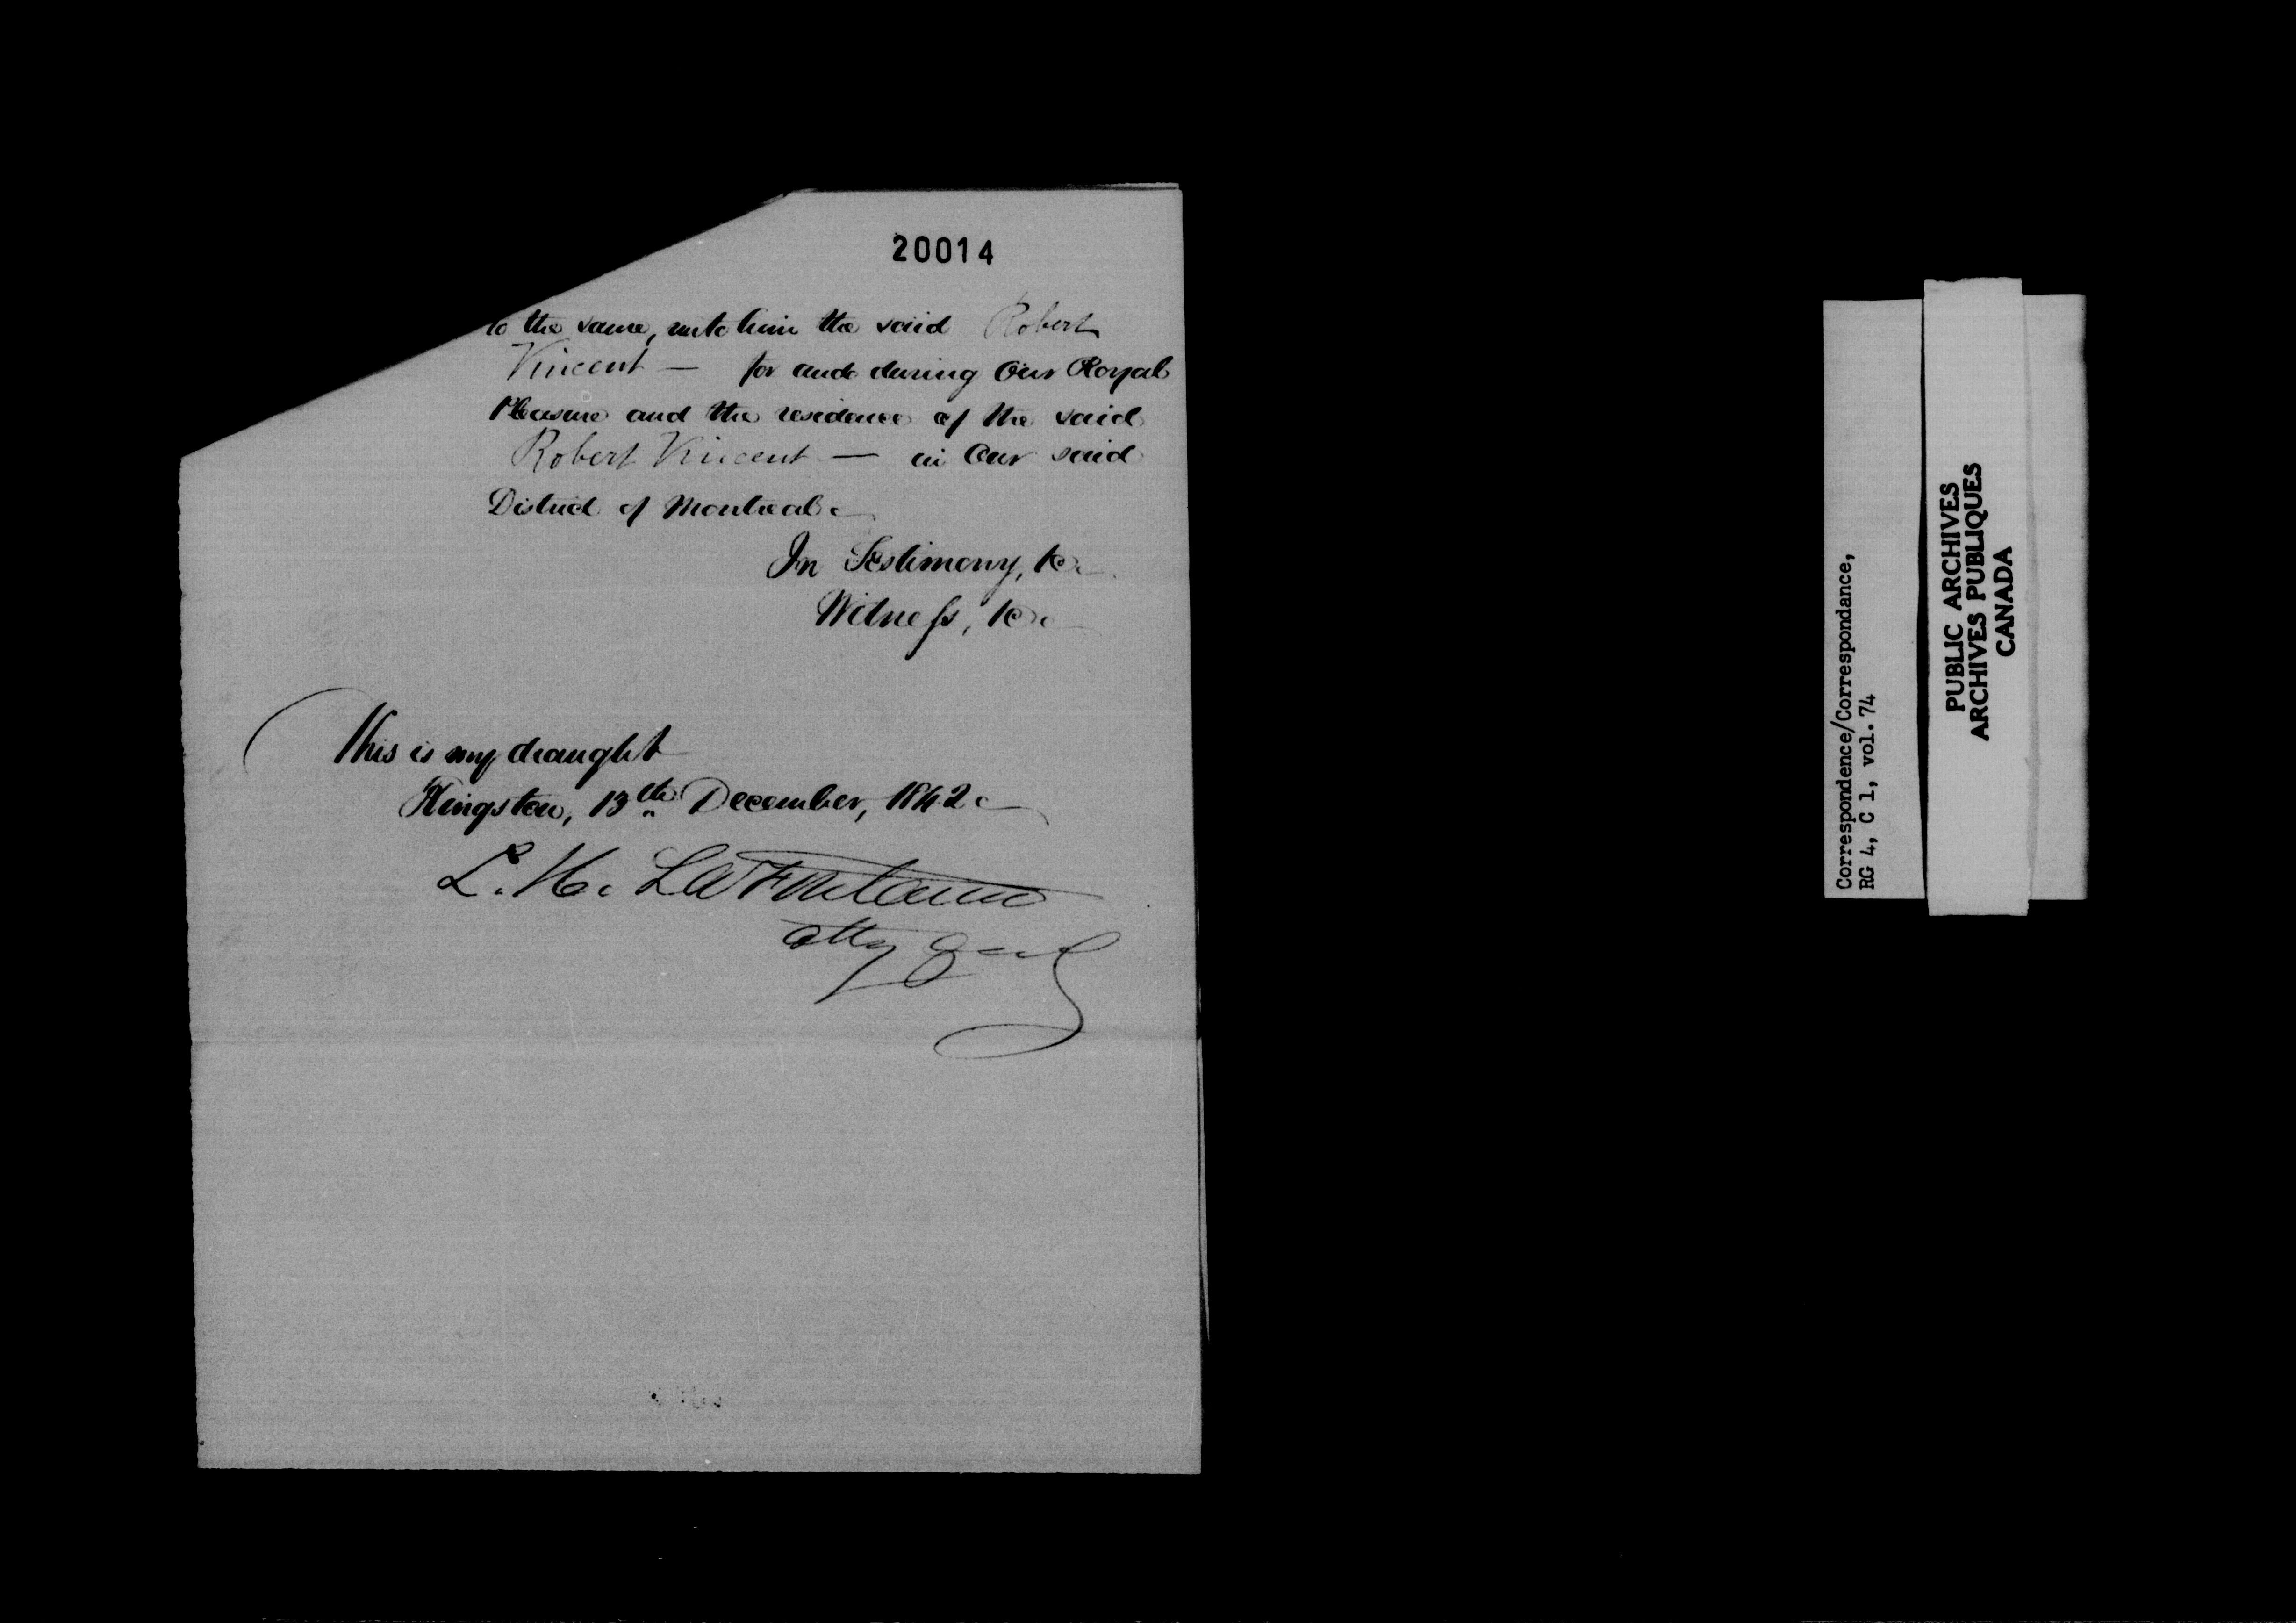 20014
to the same, unto him the said Robert
Vincent — for and during Our Royal
Pleasure and the residence of the said
Robert Vincent — in Our said
District of Montreal.
In Testimony, &c.
Witness, &c.
This is my draught
Kingston, 13th December, 1842.
L. H. LaFontaine
Atty Genl
Correspondence/Correspondance,
RG 4, C 1, vol. 74
PUBLIC ARCHIVES
ARCHIVES PUBLIQUES
CANADA